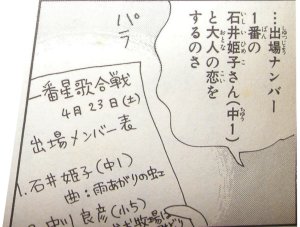 ……出場ナンバー
1番の
石井姫子さん(中1)
と大人の恋を
するのさ
パラ
一番星歌合戦
4月23日(土)
出場メンバー表
1.石井姫子(中1)
曲:雨あがりの虹
2.中川良彦(小5)